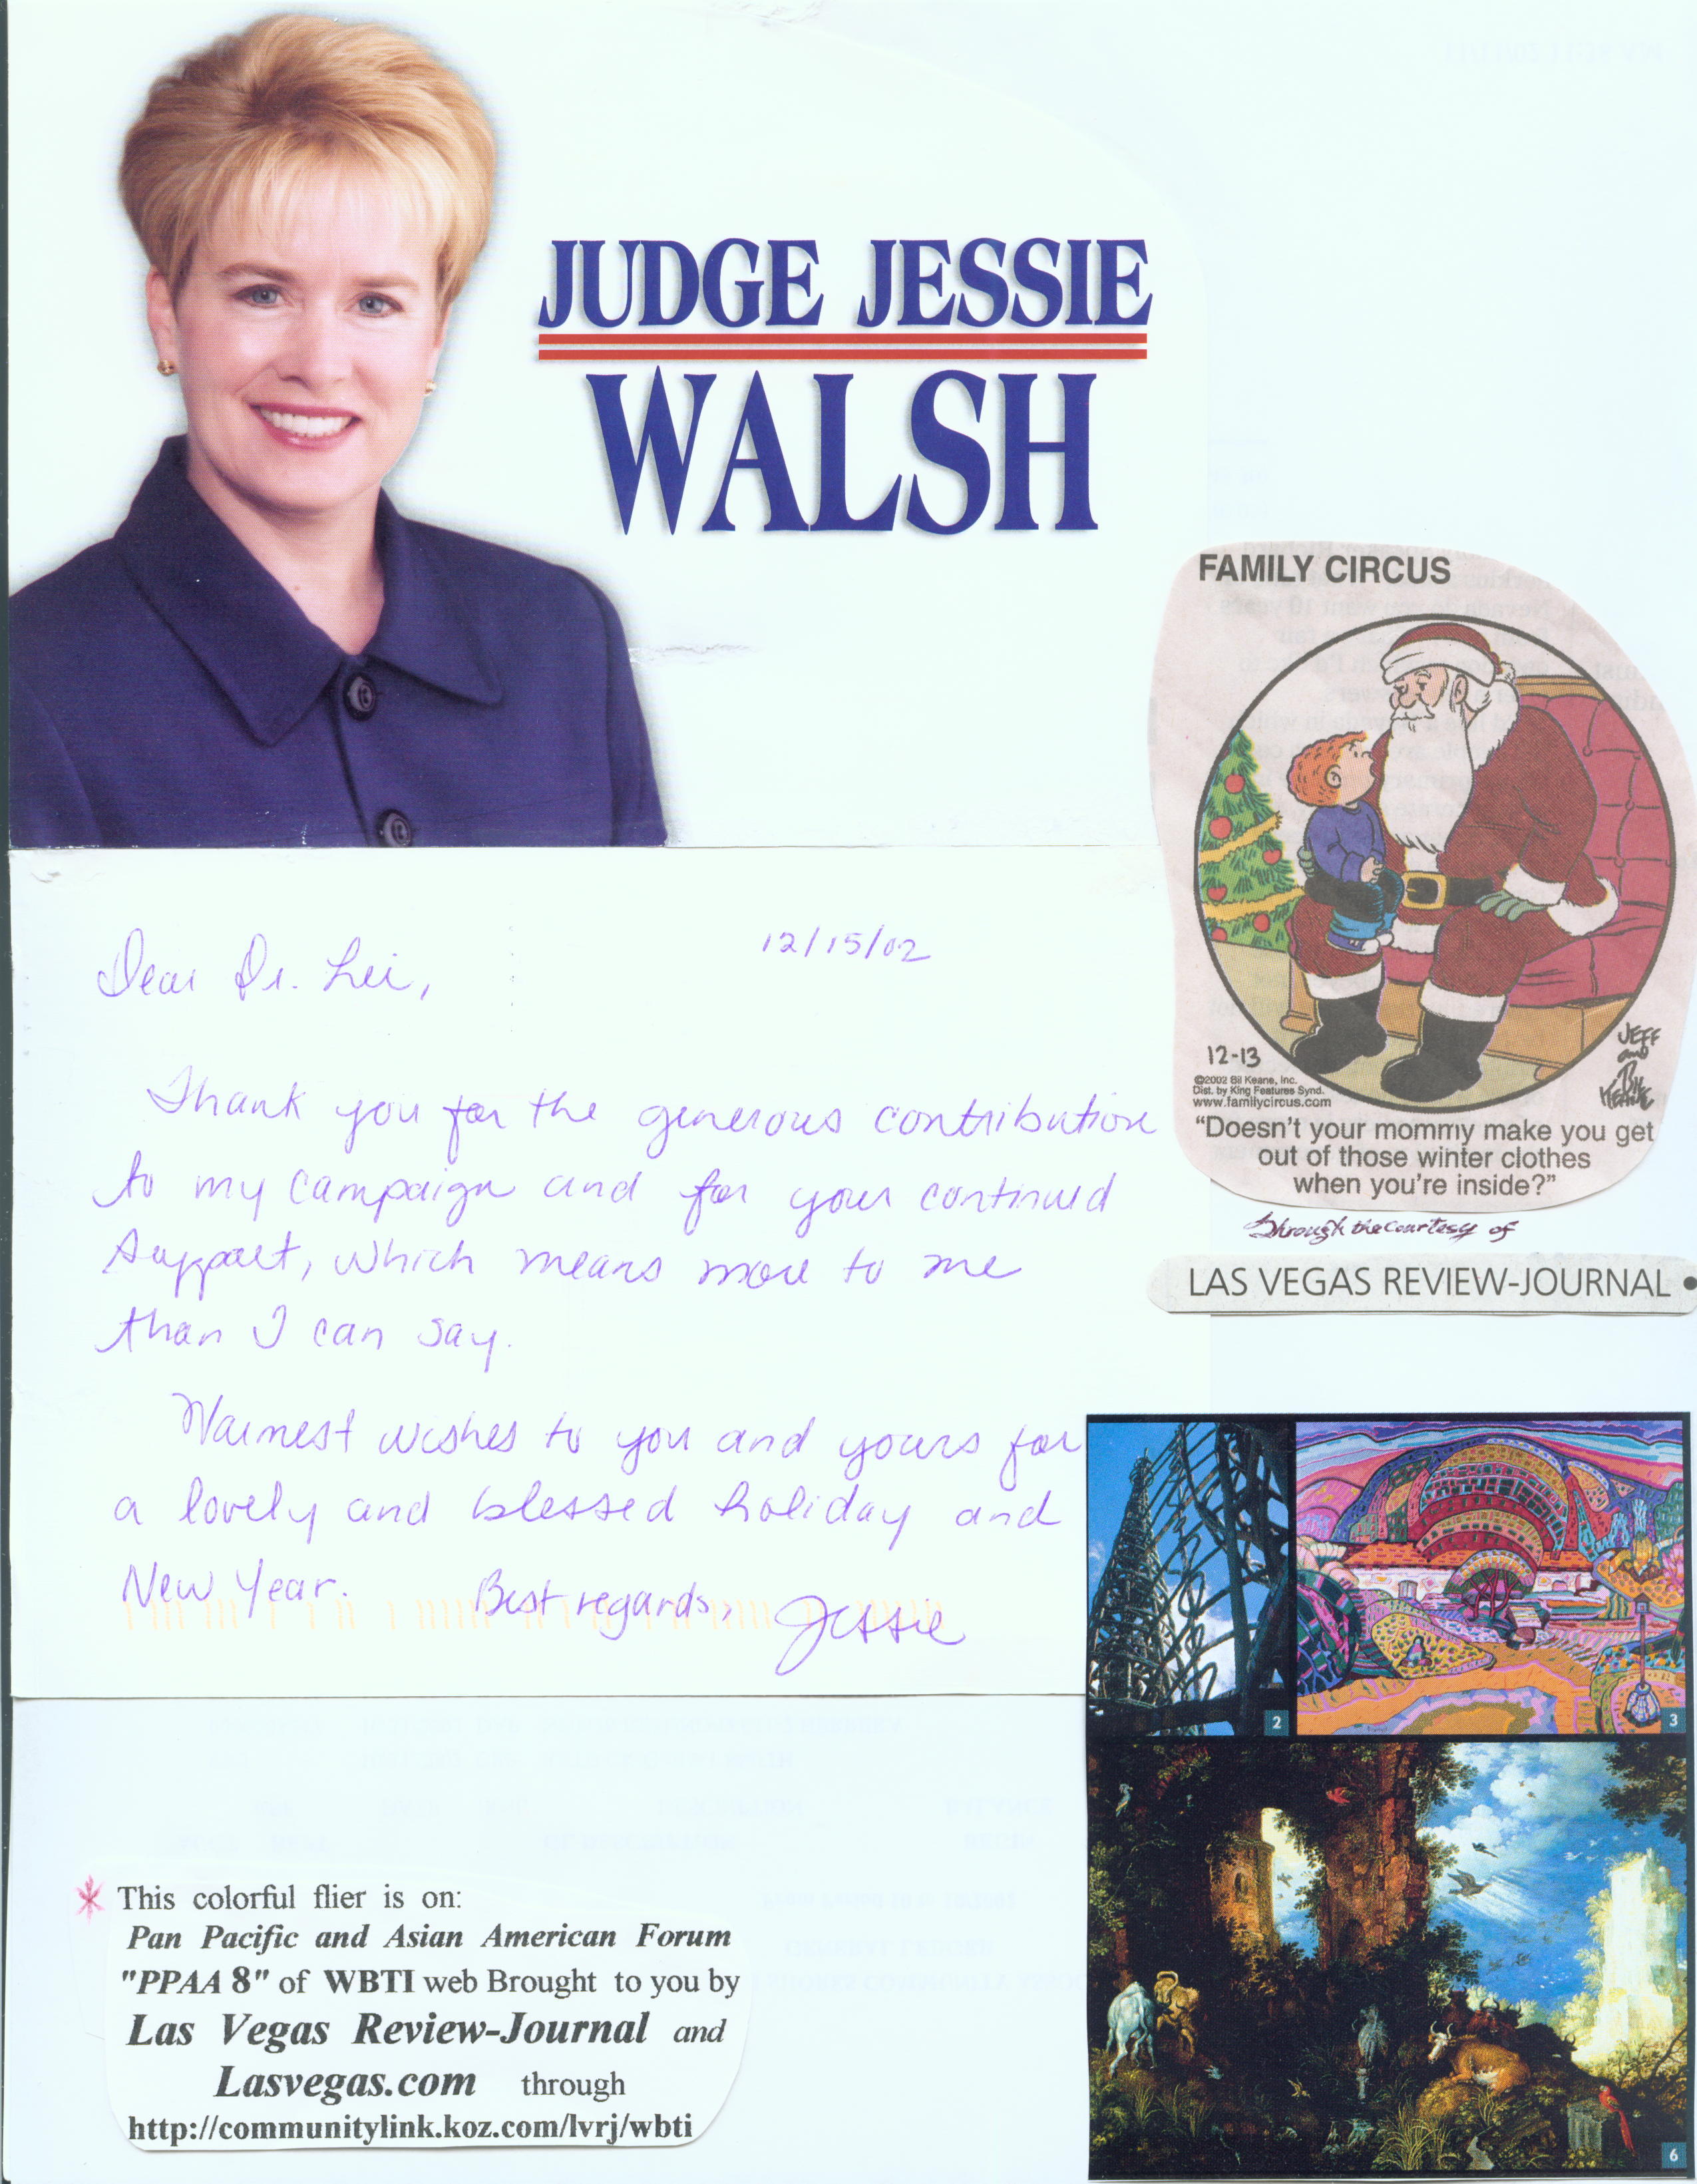 JUDGE JESSIE
WALSH
12/15/02
Dear Dr. Lei,
Thank you for the generous contribution
to my campaign and for your continued
support, which means more to me
than I can say.
Warmest wishes to you and yours for
a lovely and blessed holiday and
New Year. Best regards,
Jessie
FAMILY CIRCUS
12-13
©2002 Bil Keane, Inc.
Dist. by King Features Synd.
www.familycircus.com
JEFF
and
BIL
KEANE
“Doesn't your mommy make you get
out of those winter clothes
when you're inside?”
Through the courtesy of
LAS VEGAS REVIEW-JOURNAL •
2
3
6
* This colorful flier is on:
Pan Pacific and Asian American Forum
"PPAA 8" of WBTI web Brought to you by
Las Vegas Review-Journal and
Lasvegas.com through
http://communitylink.koz.com/lvrj/wbti